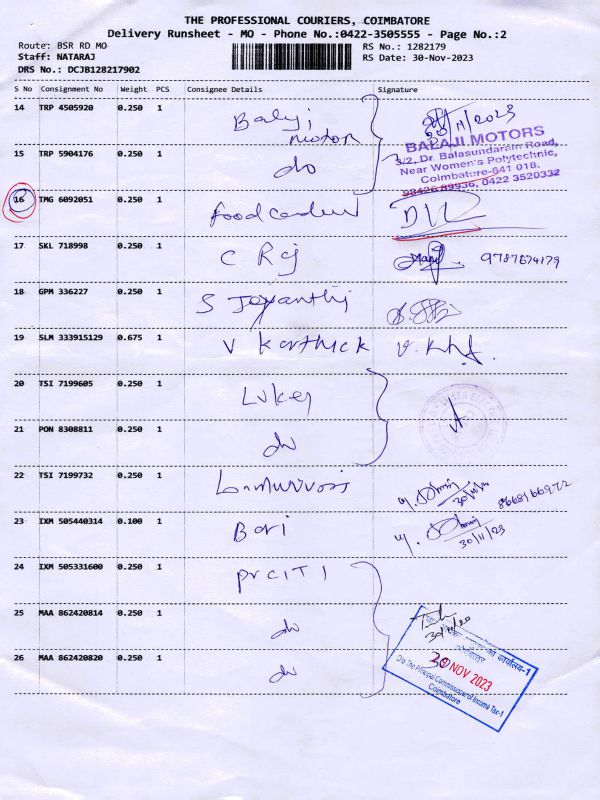 THE PROFESSIONAL COURIERS, COIMBATORE
Delivery Runsheet - MO - Phone No.:0422-3505555 - Page No.:2
Route: BSR RD MO
Staff: NATARAJ
DRS No.: DCJB128217902
RS No.: 1282179
RS Date: 30-Nov-2023
S No Consignment No Weight PCS Consignee Details Signature
14 TRP 4505920 0.250 1 Balaji motor
BALAJI MOTORS
3/2, Dr. Balasundaram Road,
Near Women's Polytechnic,
Coimbatore-641 018.
98426 89936, 0422 3520332
15 TRP 5904176 0.250 1 do
16 TMG 6092051 0.250 1
17 SKL 718998 0.250 1 C Raj
18 GPM 336227 0.250 1 S Jayanthi
19 SLM 333915129 0.675 1 V Karthick
20 TSI 7199605 0.250 1
21 PON 8308811 0.250 1 do
22 TSI 7199732 0.250 1
23 IXM 505440314 0.100 1 30/11/23
24 IXM 505331600 0.250 1 PrCIT 1
25 MAA 862420814 0.250 1 do
26 MAA 862420820 0.250 1 do
का कार्यालय-1
30 NOV 2023
O/o The Principal Commissioner of Income Tax-1
Coimbatore